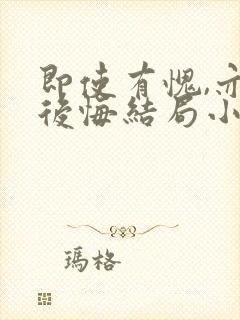 即使有愧,亦
後悔結局小
瑪格